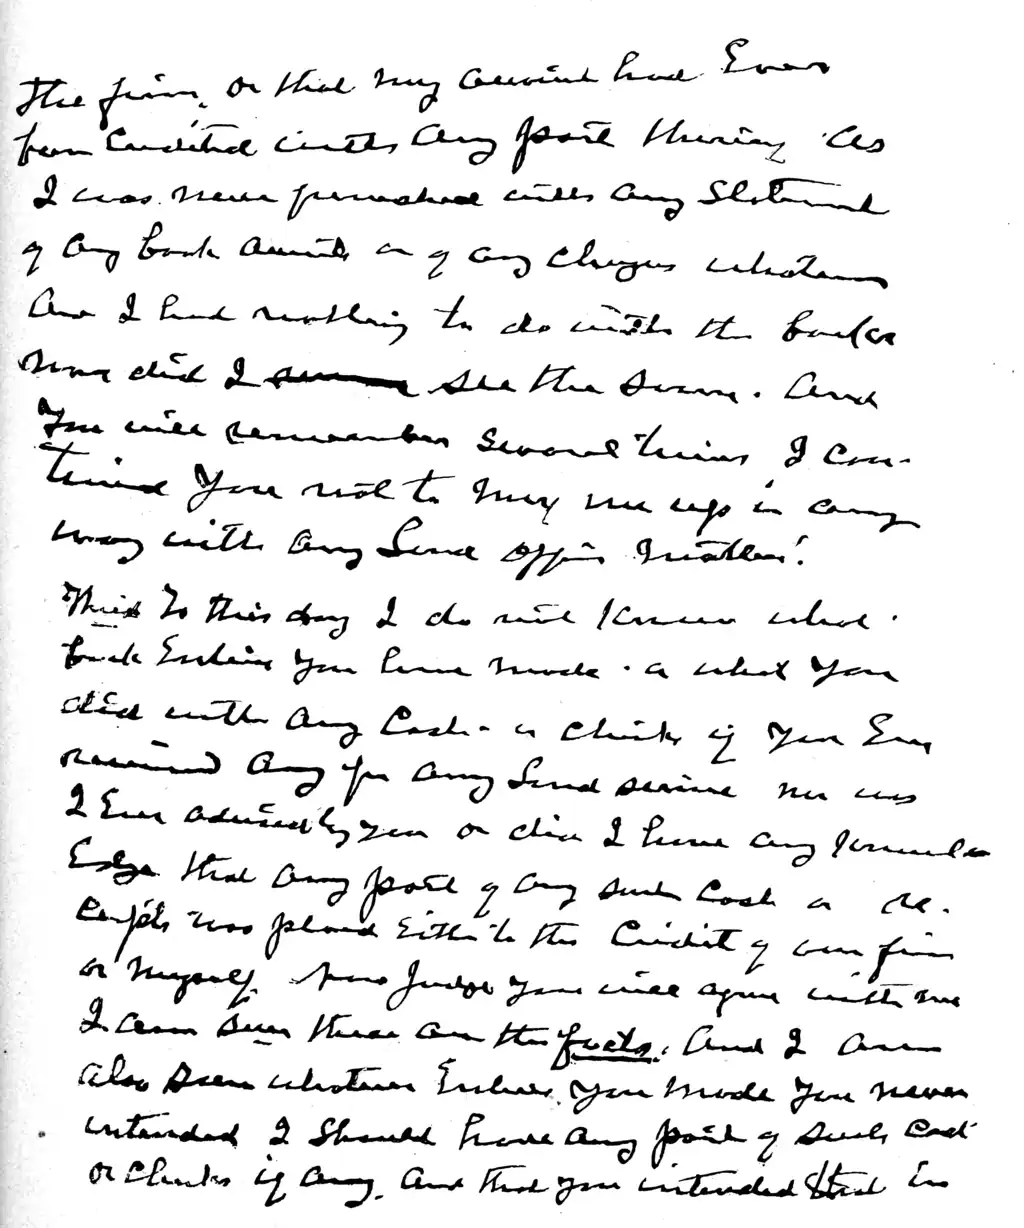 the firm, or that my account had Ever
been Credited with Any part thereof as
I was never furnished with any Statement
of any book accounts or of any charges whatever
And I had nothing to do with the books
nor did I see the same. And
You will remember Several times I cau-
tioned You not to mix me up in any
way with any Land Office Matters!
to this day I do not Know what
book Entries You have made or what You
did with Any Cash or checks if You Ever
received Any for Any Land service nor was
I Ever advised by you or did I have any Knowl-
Edge that Any part of Any such Cash or re-
ceipts was placed Either to the Credit of our firm
or Myself. Now Judge You will agree with me
I am sure these are the facts. And I am
also sure whatever Entries You made You never
intended I Should have Any part of such Cash
or checks if any, and that you intended that in